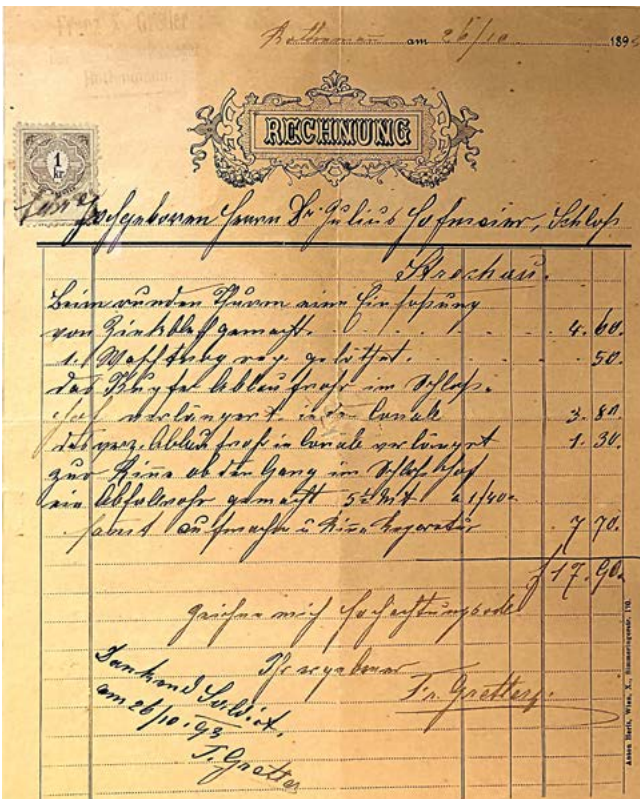 Rottenmann am 26/10 189
RECHNUNG
1
kr
Hochgeboren Herrn Dr. Julius Hofmeier, Schloß
Strechau.
Beim runden Thurm eine Einfassung
von Zinkblech gemacht. 4. 60.
1. Waschtrog rep. gelöthet. 50.
das Kupfer Ablaufrohr im Schloß.
hof verlängert in den Canale 3. 80
das verz. Ablaufrohr in Canale verlängert 1. 30.
zur Rine ob den Gang im Schloß Hof
ein Abfalrohr gemacht 5½ Mt a 1/40.
samt aufmachen u Rine Reperatur 7 70.
f 17. 90.
zeichne mich hochachtungsvoll
Ihr ergebener
Fr. Gretler
Dankend Saldirt.
am 26/10. 93
F. Gretler
Wien, X., Simmeringerstr. 110.